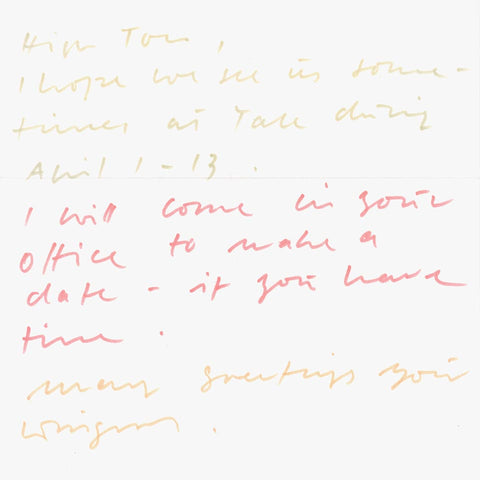 High Tom,
I hope we see us some-
times at Yale during
April 1-13.
I will come in your
office to make a
date - if you have
time.
many greetings your